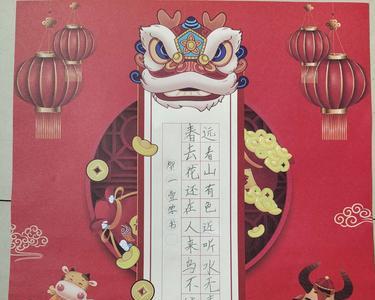 远看山有色近听水无
春去花还在人来鸟不
书